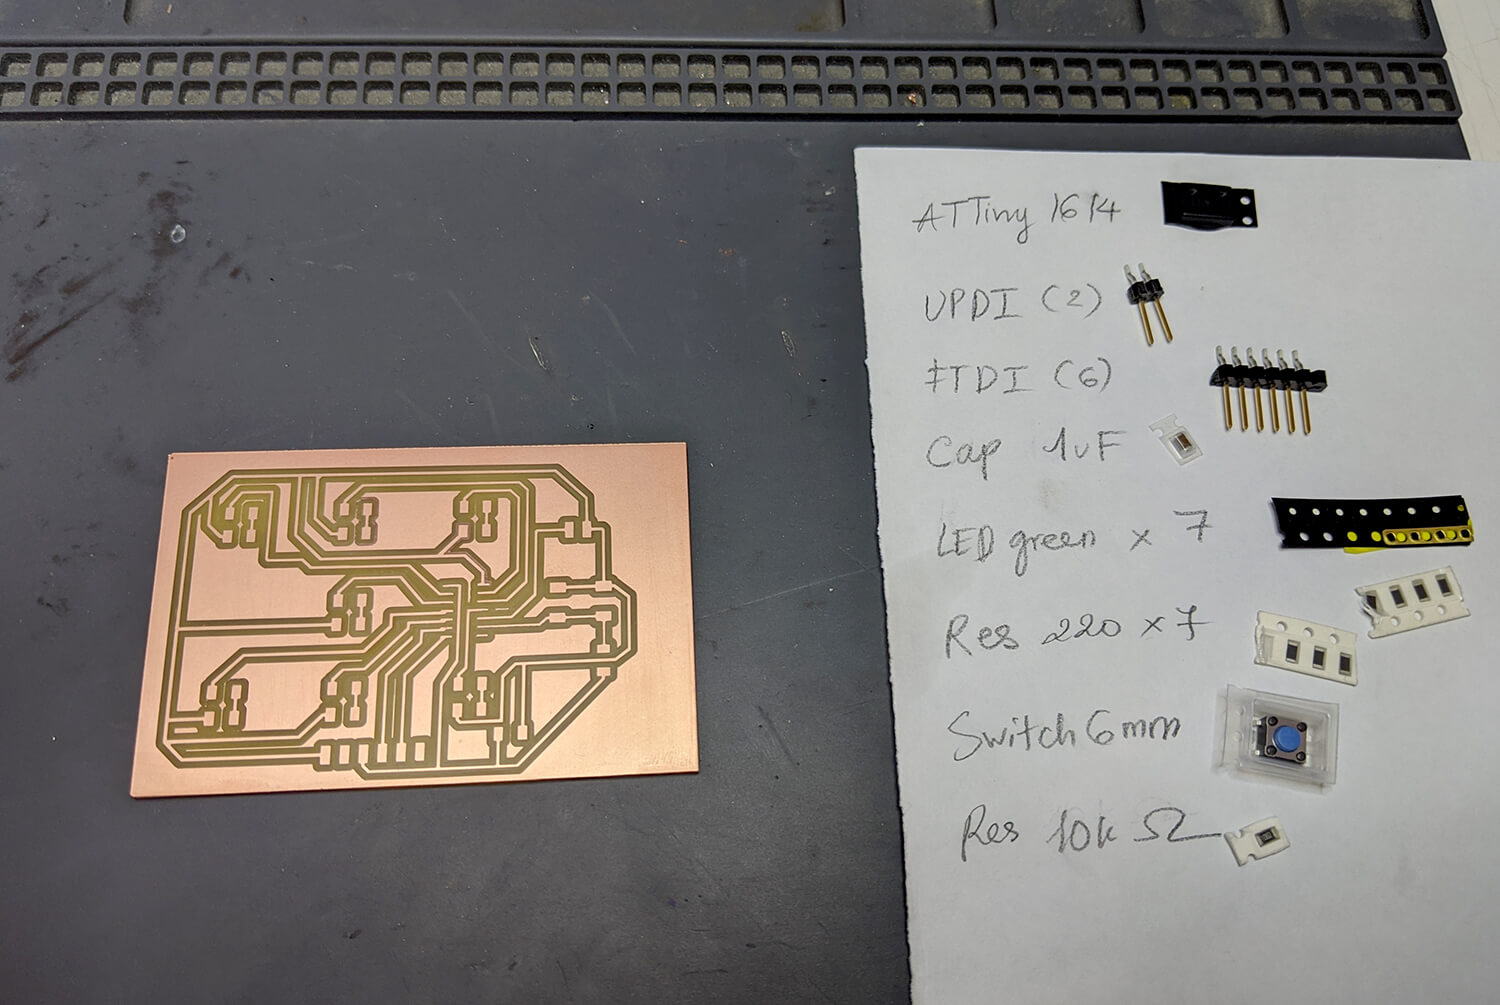 ATTiny 1614
UPDI (2)
FTDI (6)
Cap 1uF
LED green x 7
Res 220 x 7
Switch 6mm
Res 10k Ω